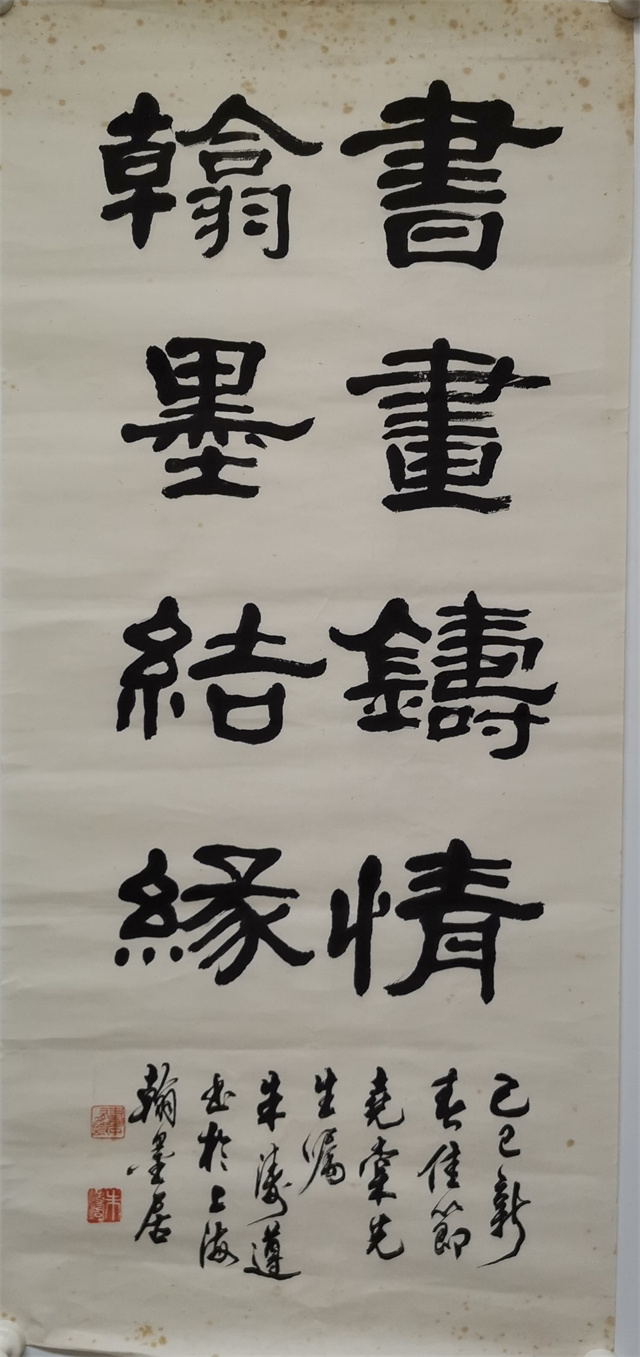 書畫鑄情
翰墨結緣
己巳新
春佳節
堯棠先
生嘱
朱濤遵
書於上海
翰墨居